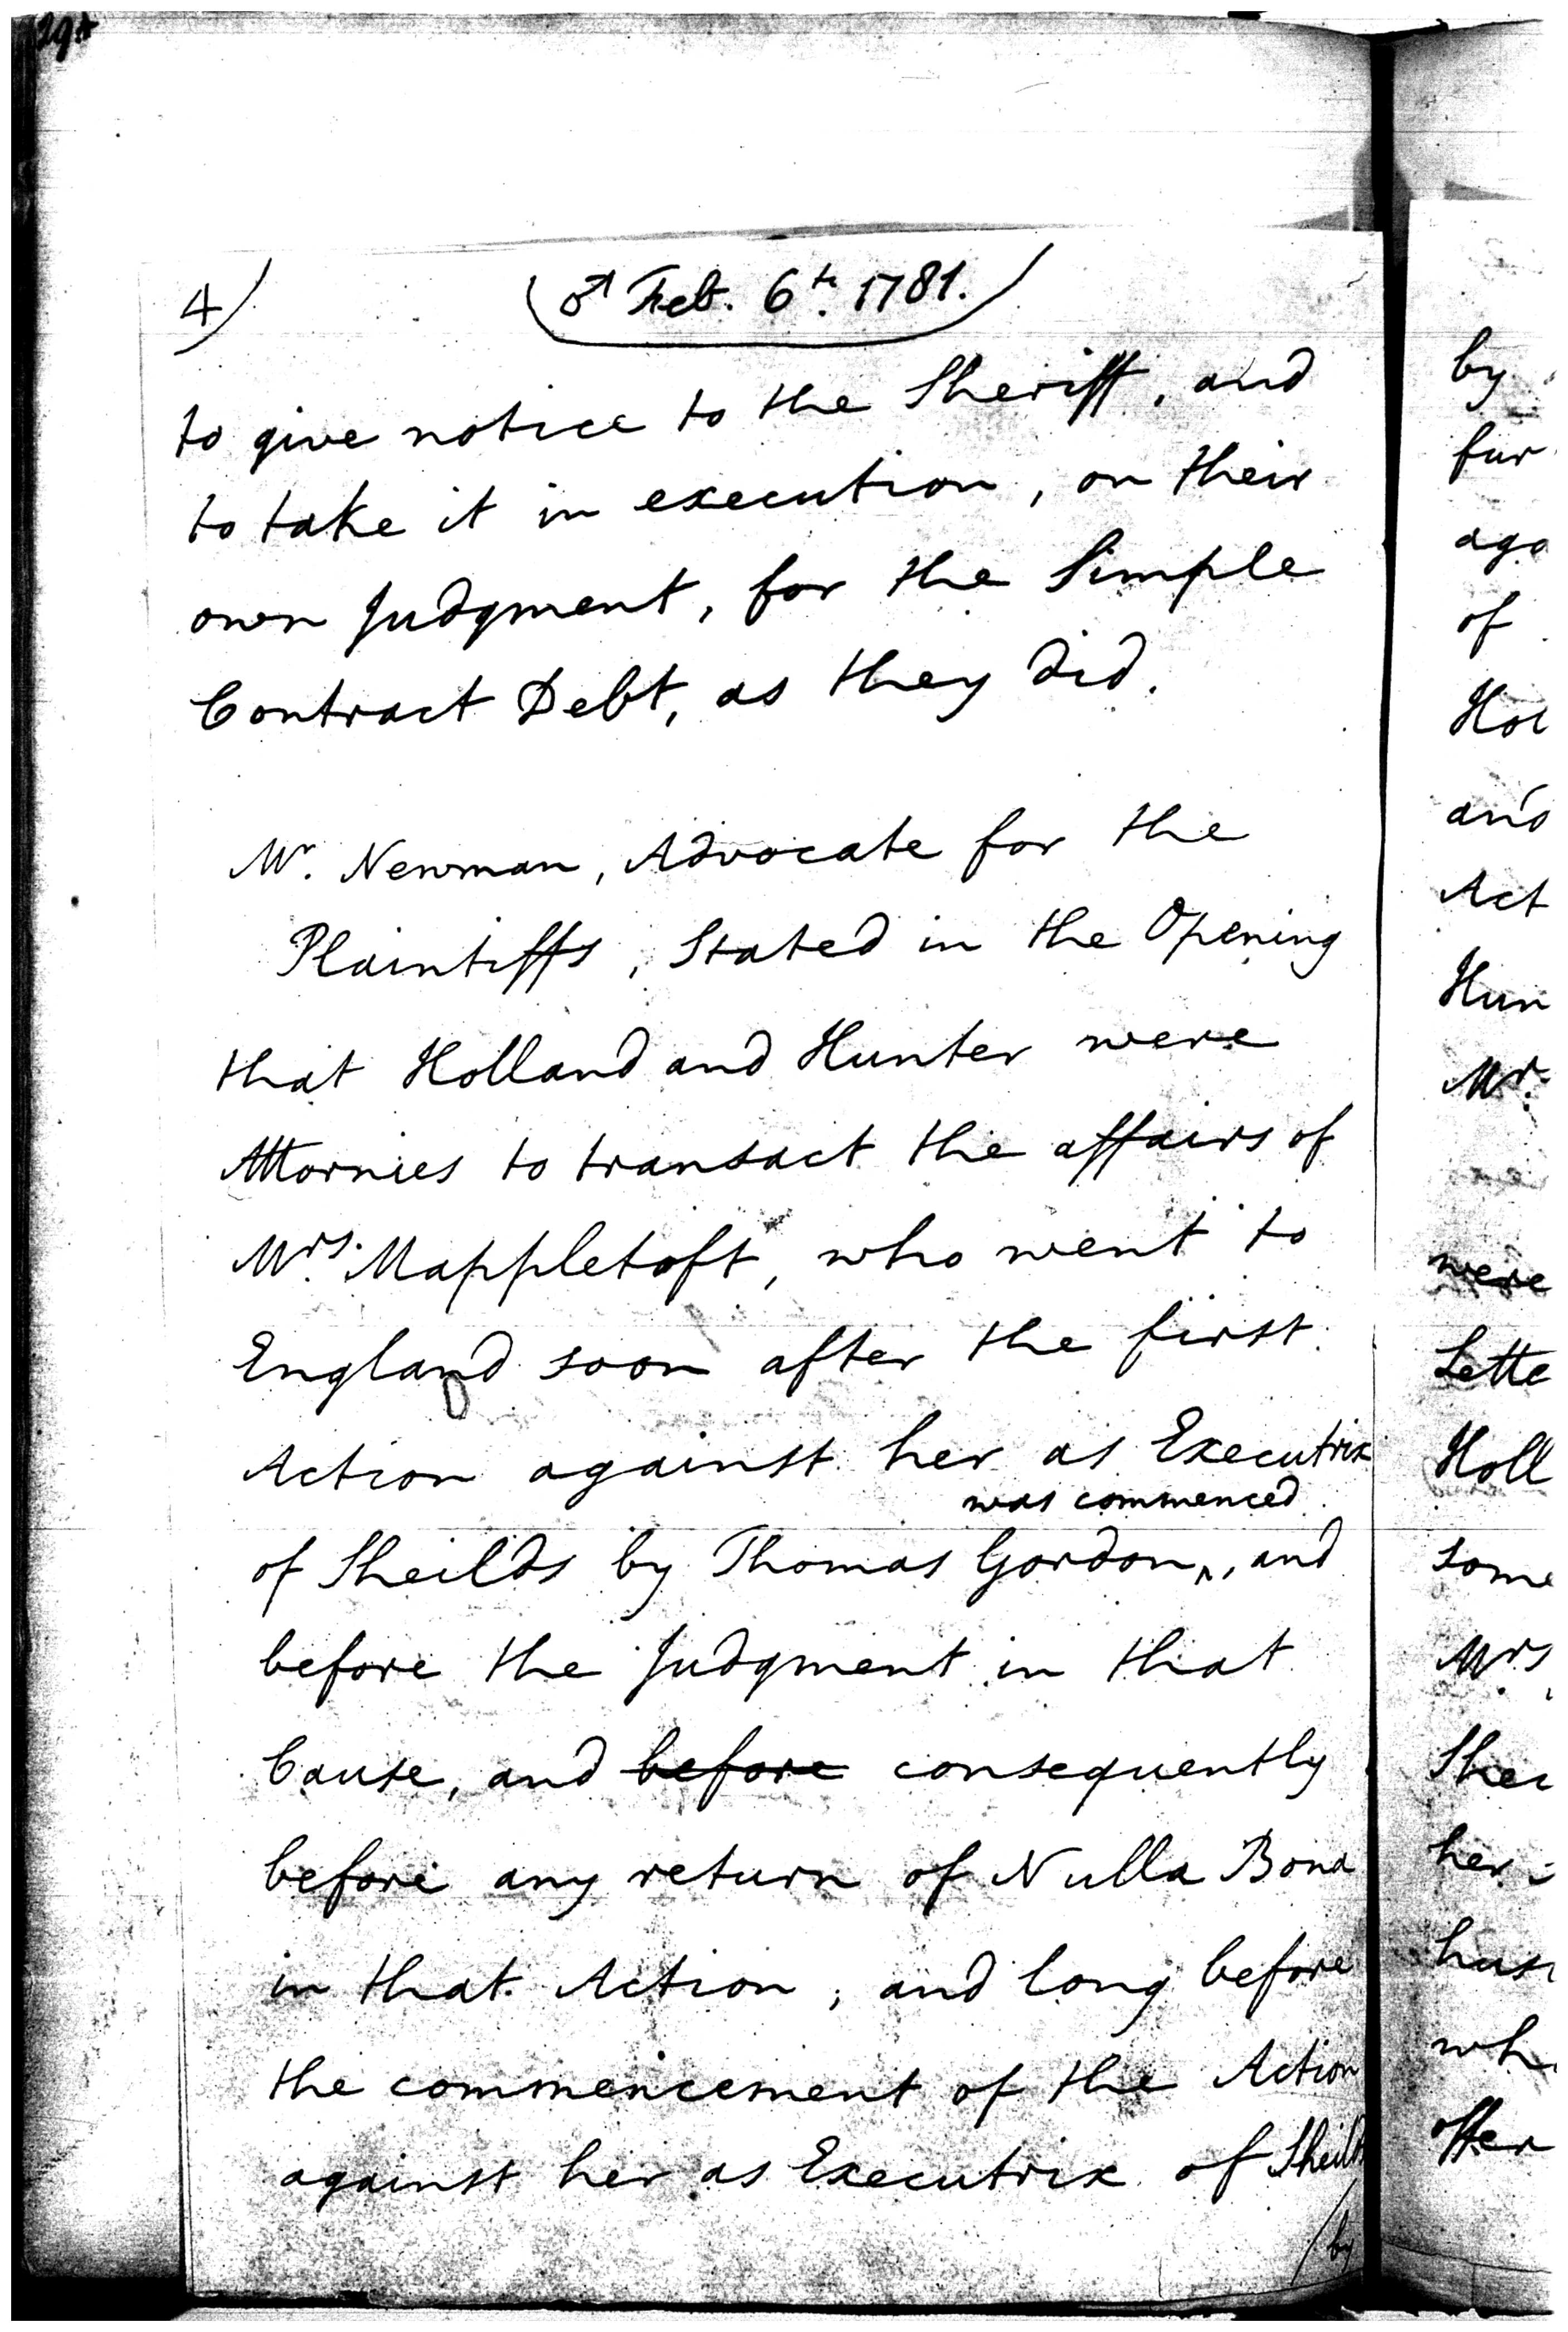 4)
♂ Feb. 6th. 1781.
to give notice to the Sheriff, and
to take it in execution, on their
own Judgment, for the Simple
Contract Debt, as they did.
Mr. Newman, Advocate for the
Plaintiffs, Stated in the Opening
that Holland and Hunter were
Attornies to transact the affairs of
Mrs. Mappletoft, who went to
England soon after the first
Action against her as Executrix
was commenced
of Sheilds by Thomas Gordon‸, and
before the Judgment in that
Cause, and ~~before~~ consequently
before any return of Nulla Bona
in that Action, and long before
the commencement of the Action
against her as Executrix of Sheilds
/by
by
fur
aga
of
Hol
and
Act
Hun
Mr.
were
Lette
Holl
some
Mrs
Shei
her
hus
wh
offer